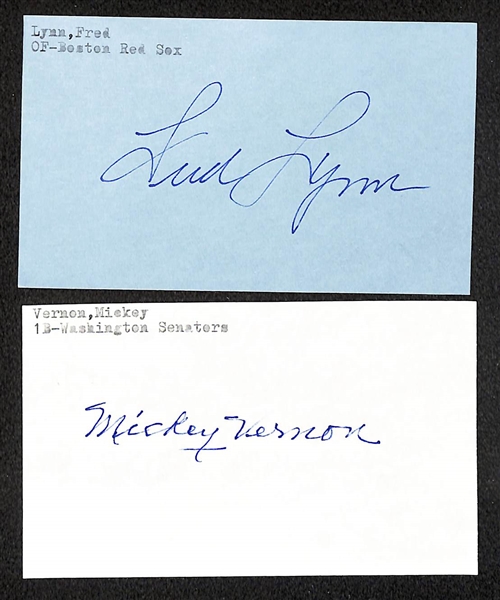 Lynn,Fred
OF-Boston Red Sox
Fred Lynn
Vernon,Mickey
1B-Washington Senators
Mickey Vernon